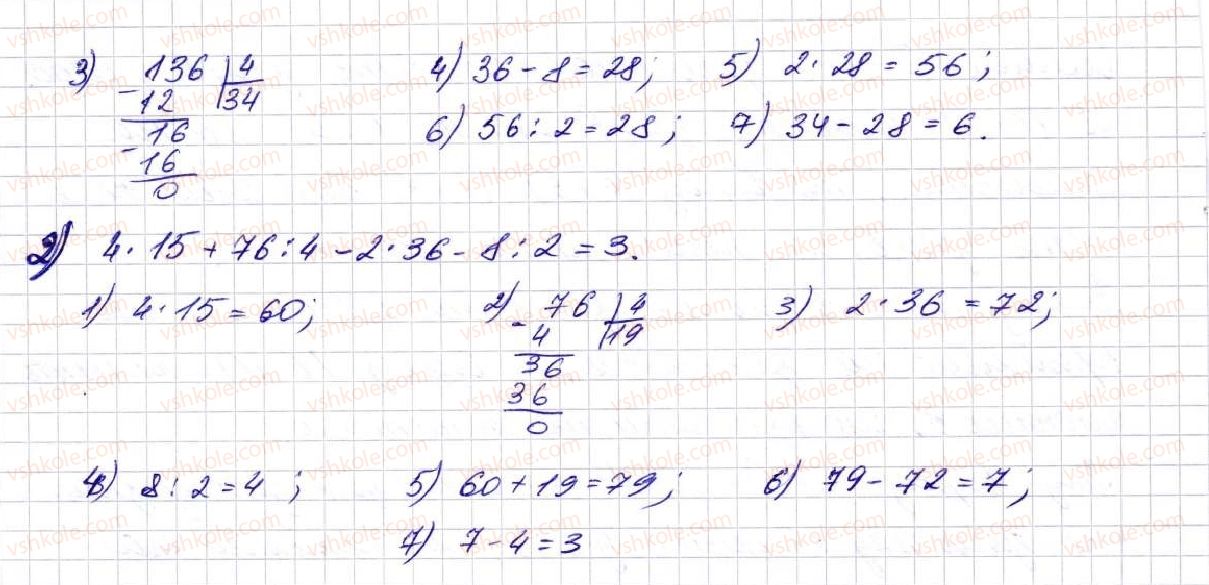 3) 136 | 4
- 12 | 34
16
- 16
0
4) 36 - 8 = 28; 5) 2 · 28 = 56;
6) 56 : 2 = 28; 7) 34 - 28 = 6.
2) 4 · 15 + 76 : 4 - 2 · 36 - 8 : 2 = 3.
1) 4 · 15 = 60;
2) 76 | 4
- 4 | 19
36
36
0
3) 2 · 36 = 72;
4) 8 : 2 = 4; 5) 60 + 19 = 79; 6) 79 - 72 = 7;
7) 7 - 4 = 3
vshkole.com